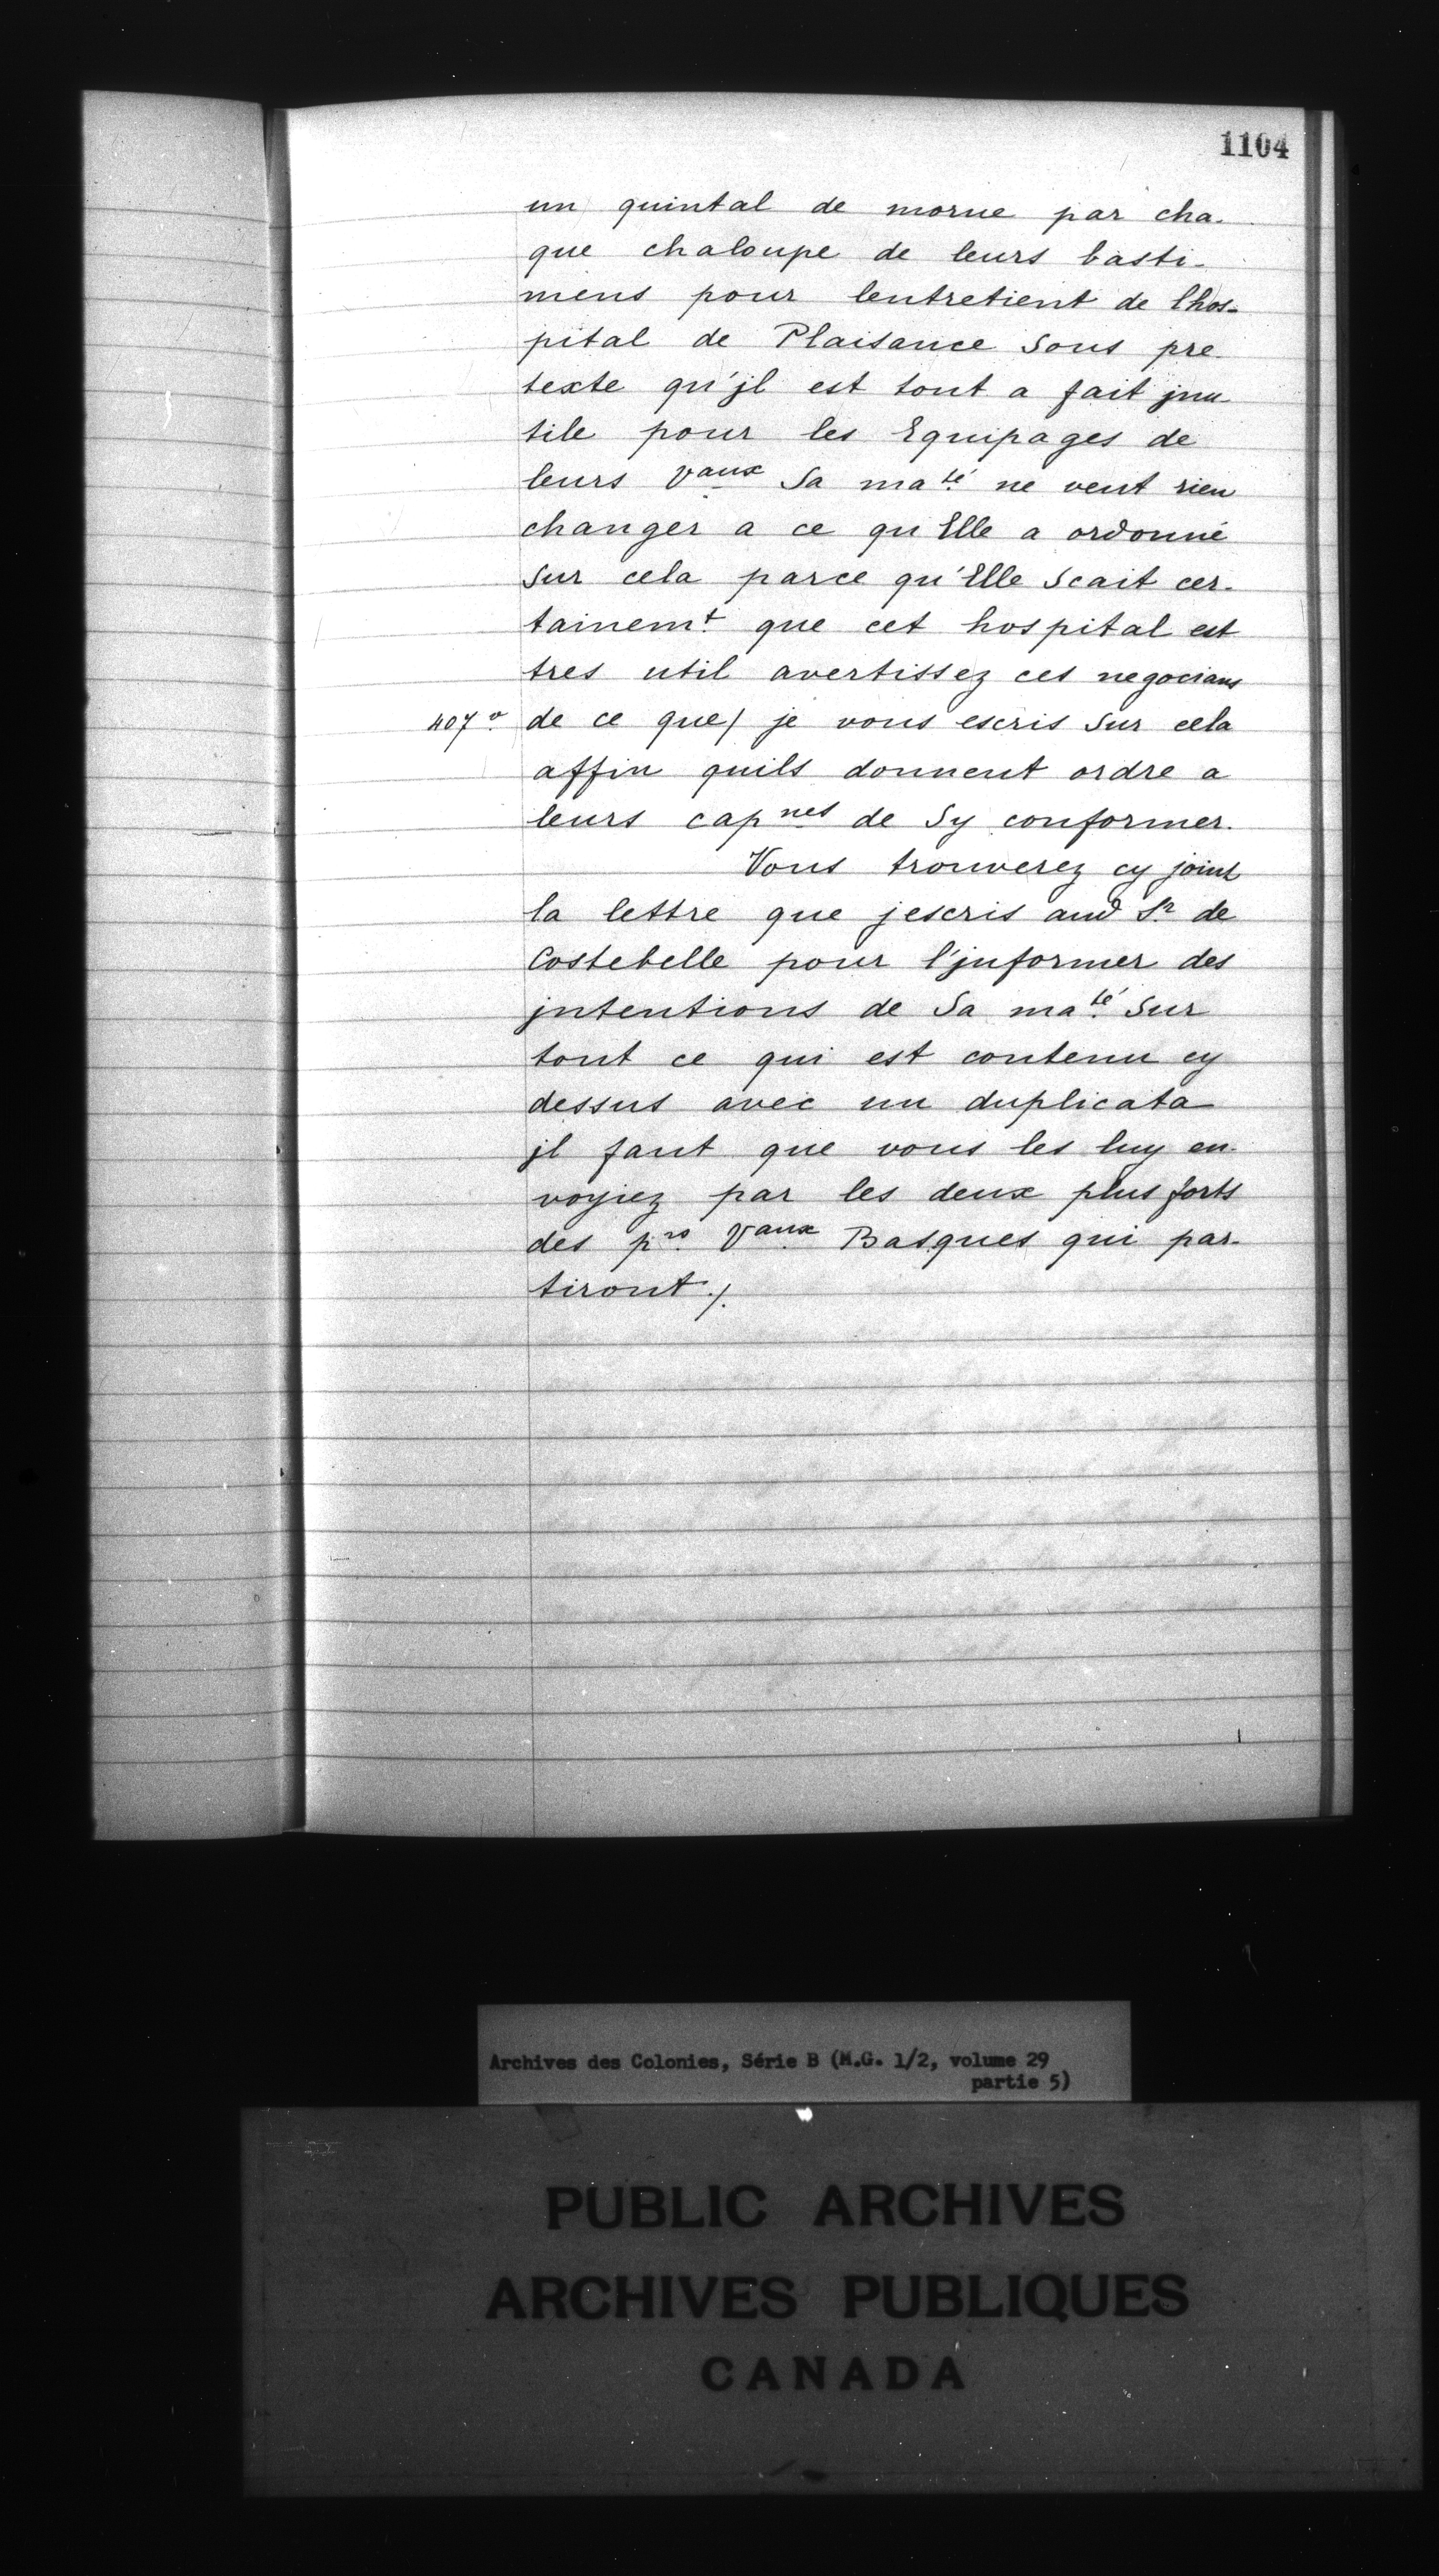 1104
un quintal de morue par cha-
que chaloupe de leurs basti-
mens pour lentretient de lhos-
pital de Plaisance sous pre-
texte qu'jl est tout a fait jnu
tile pour les Equipages de
leurs Vaux Sa maté ne veut rien
changer a ce qu'Elle a ordonné
sur cela parce qu'Elle scait cer-
tainemt que cet hospital est
tres util avertissez ces negocians
407 v de ce que/ je vous escris sur cela
affin quils donnent ordre a
leurs capnes de sy conformer.
Vous trouverez cy joint
la lettre que jescris aud Sr de
Costebelle pour l'jnformer des
jntentions de Sa maté sur
tout ce qui est contenu cy
dessus avec un duplicata
jl faut que vous les luy en-
voyiez par les deux plus forts
des prs Vaux Basques qui par-
tiront /.
Archives des Colonies, Série B (M.G. 1/2, volume 29
partie 5)
PUBLIC ARCHIVES
ARCHIVES PUBLIQUES
CANADA